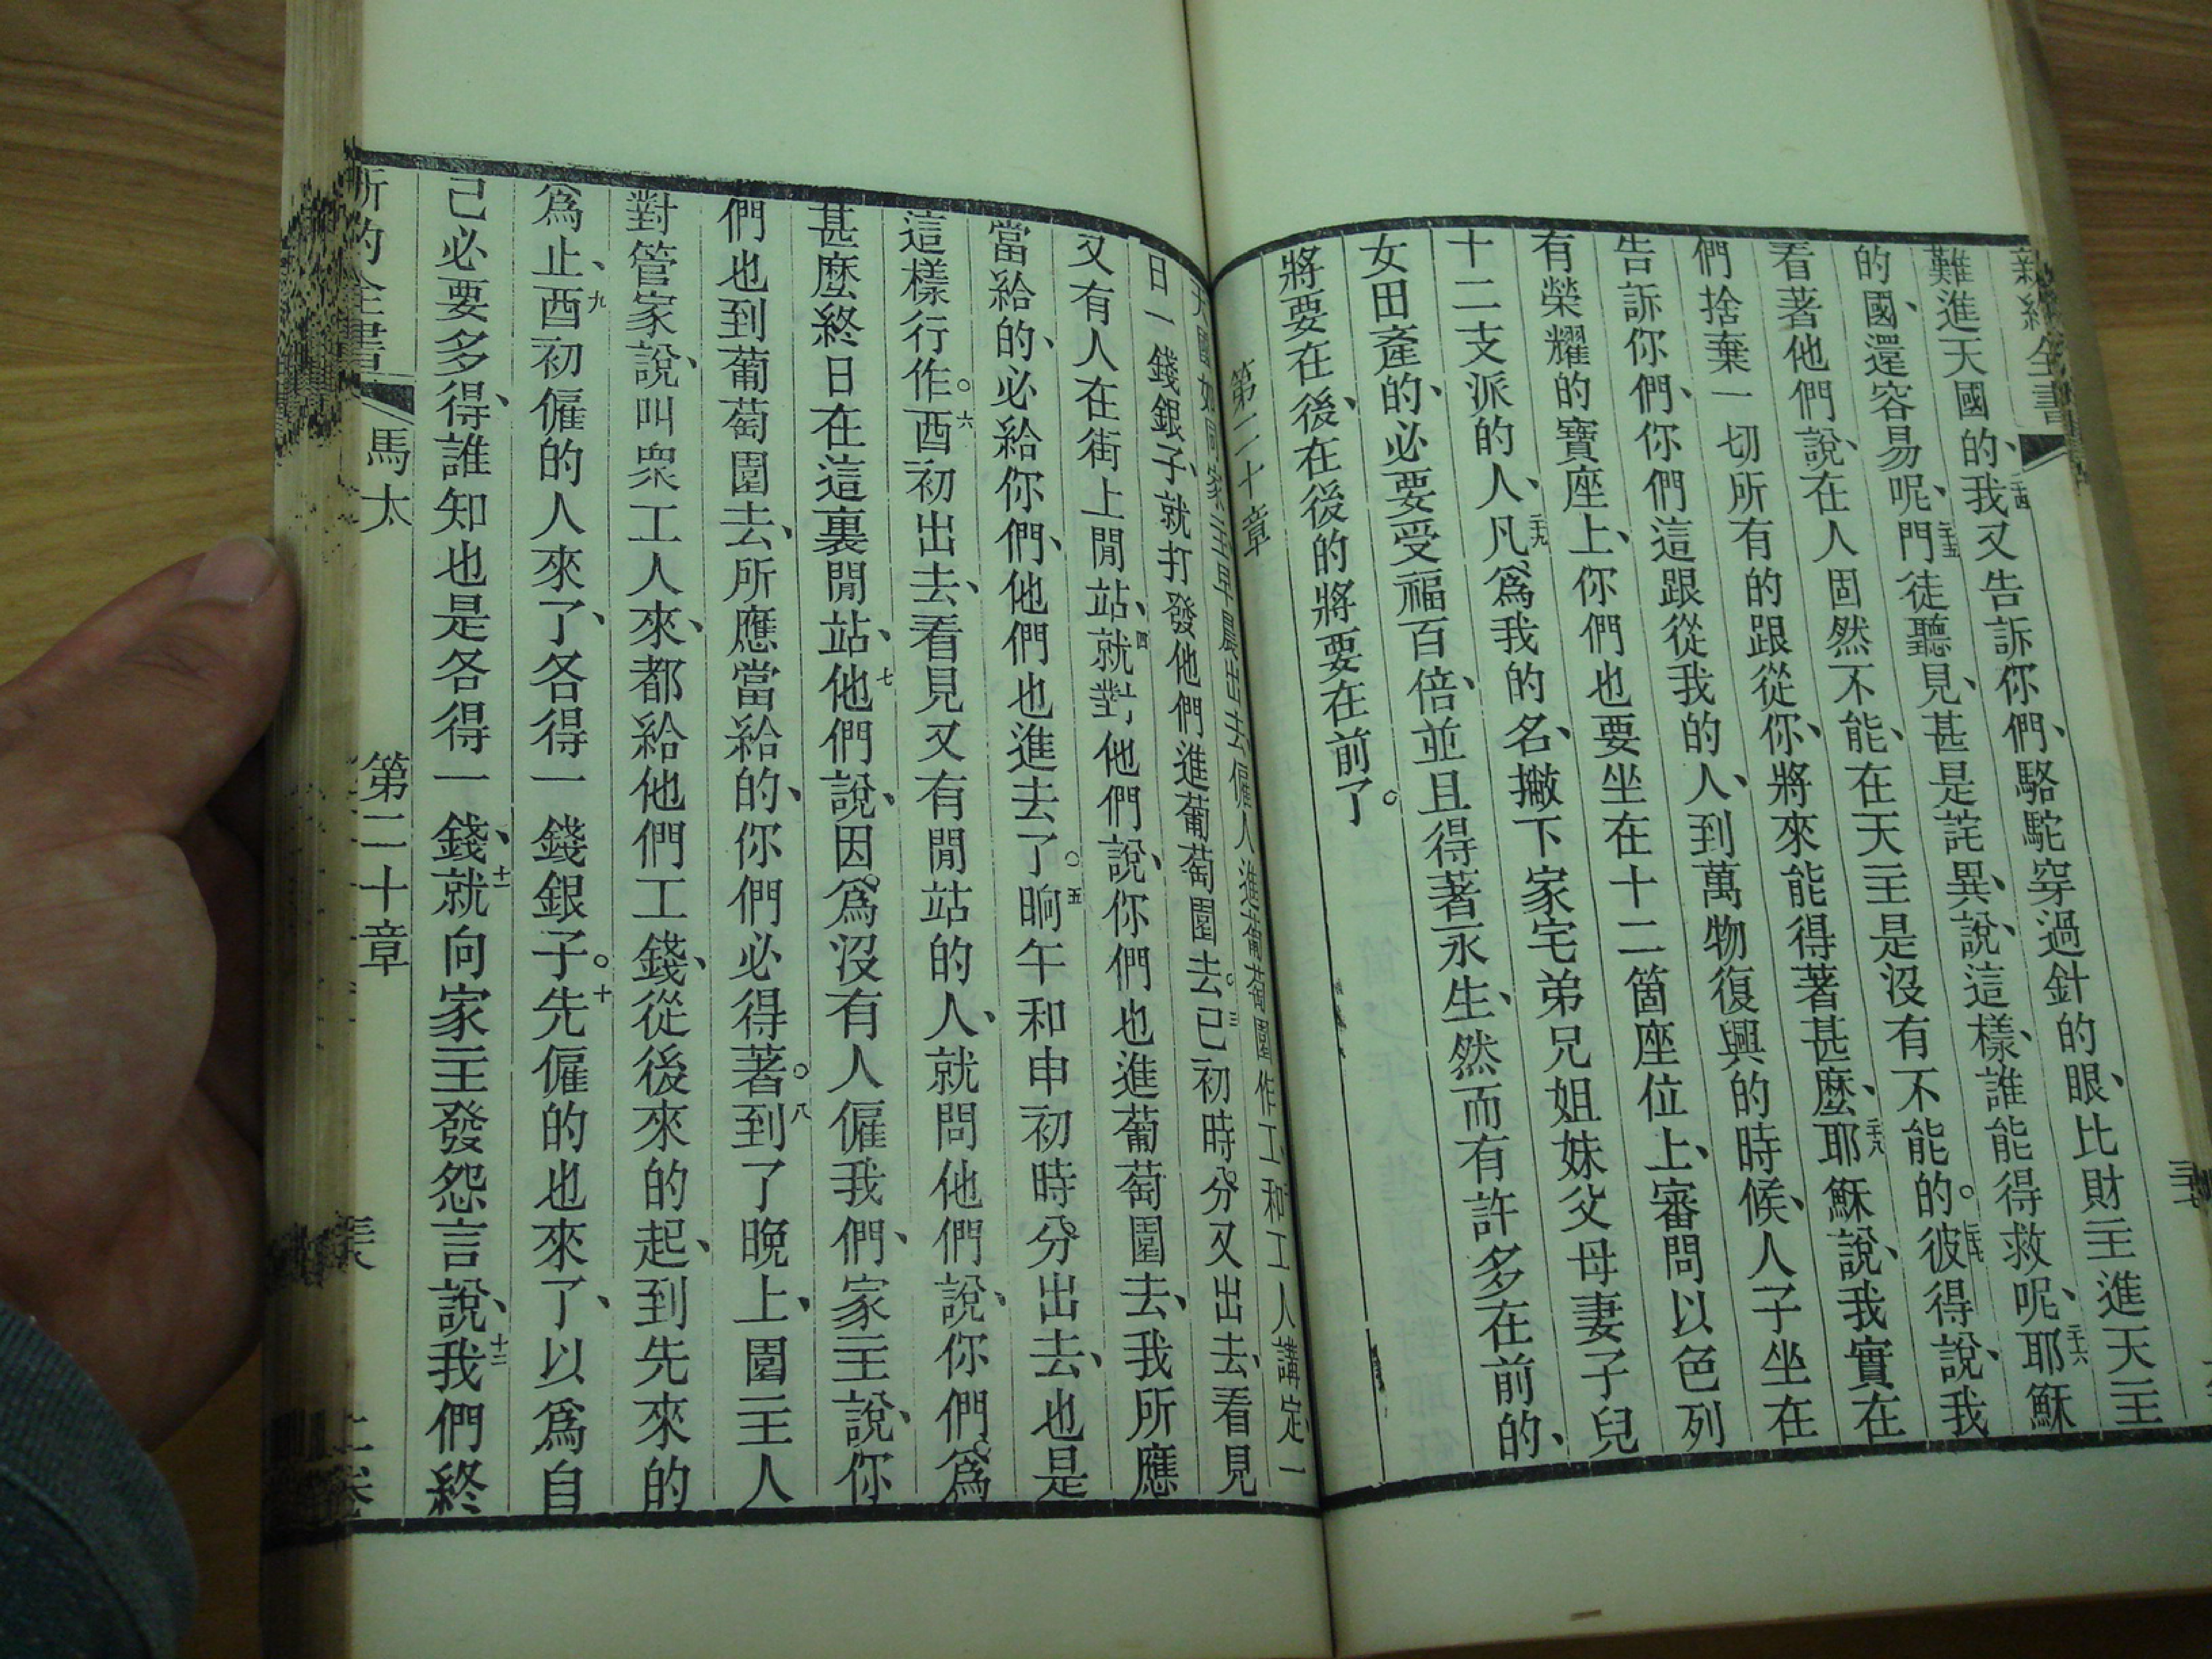 難進天國的、二十四我又告訴你們、駱駝穿過針的眼、比財主進天主
的國、還容易呢、二十五門徒聽見、甚是詫異、說、這樣、誰能得救呢、二十六耶穌
看著他們、說、在人固然不能、在天主是沒有不能的。二十七彼得說、我
們捨棄一切所有的跟從你、將來能得著甚麼、二十八耶穌說、我實在
告訴你們、你們這跟從我的人、到萬物復興的時候、人子坐在
有榮耀的寶座上、你們也要坐在十二箇座位上、審問以色列
十二支派的人、二十九凡爲我的名、撇下家宅弟兄姐妹父母妻子兒
女田產的、必要受福百倍、並且得著永生、三十然而有許多在前的、
將要在後、在後的將要在前了。
第二十章
天國如同家主早晨出去、僱人進葡萄園作工、和工人講定一
日一錢銀子、就打發他們進葡萄園去。三巳初時分又出去、看見
又有人在街上閒站、四就對他們說、你們也進葡萄園去、我所應
當給的、必給你們、他們也進去了。五晌午和申初時分出去、也是
這樣行作。六酉初出去、看見又有閒站的人、就問他們說、你們爲
甚麼終日在這裏閒站、七他們說、因爲沒有人僱我們、家主說、你
們也到葡萄園去、所應當給的、你們必得著。八到了晚上、園主人
對管家說、叫眾工人來、都給他們工錢、從後來的起、到先來的
爲止、九酉初僱的人來了、各得一錢銀子。十先僱的也來了、以爲自
己必要多得、誰知也是各得一錢、十一就向家主發怨言說、十二我們終
馬太 第二十章